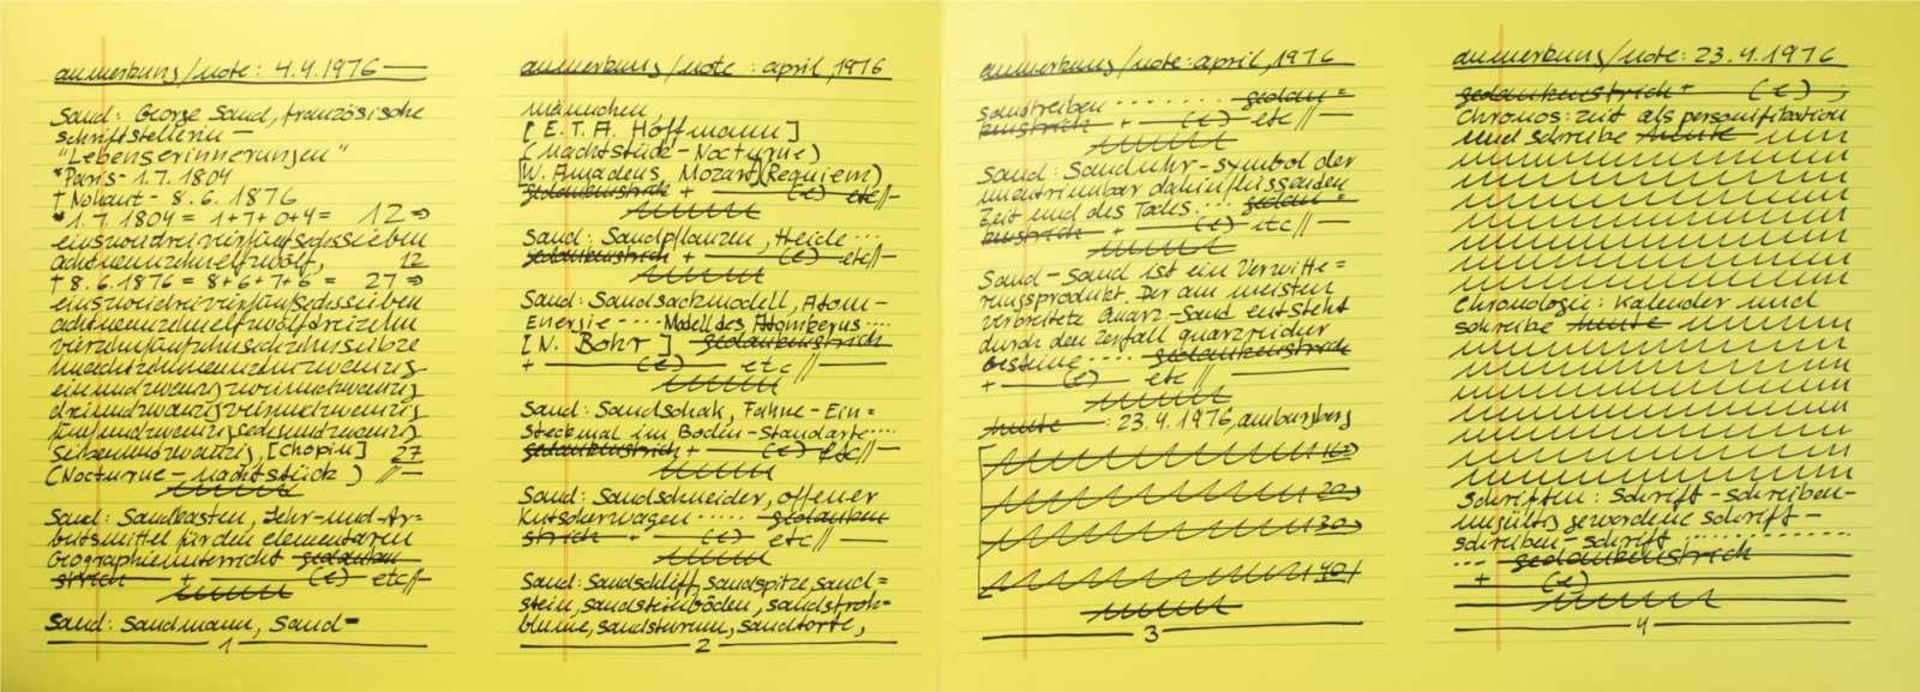 anmerkung/note: 4.4.1976
Sand: George Sand, französische
schriftstellerin —
"Lebenserinnerungen"
*Paris - 1.7.1804
† Nohant - 8.6.1876
* 1.7.1804 = 1+7+0+4 = 12 ⇒
einszweidreivierfünfsechssieben
achtneunzehnelfzwölf, 12
† 8.6.1876 = 8+6+7+6 = 27 ⇒
einszweidreivierfünfsechssieben
achtneunzehnelfzwölfdreizehn
vierzehnfünfzehnsechzehnsiebze
hnachtzehnneunzehnzwanzig
einundzwanzigzweiundzwanzig
dreiundzwanzigvierundzwanzig
fünfundzwanzigsechsundzwanzig
siebenundzwanzig, [Chopin] 27
(Nocturne - Nachtstück) //—
Sand: Sandkasten, Lehr-und-Ar=
beitsmittel für den elementaren
Geographieunterricht gedanken
strich + —(e)— etc//—
Sand: Sandmann, Sand=
1
anmerkung/note: april, 1976
männchen,
[E.T.A. Hoffmann]
(Nachtstück - Nocturne)
[W. Amadeus, Mozart](Requiem)
gedankenstrich + —(e)— etc//—
Sand: Sandpflanzen, Heide ...
gedankenstrich + —(e)— etc//—
Sand: Sandsackmodell, Atom-
Energie .... Modell des Atomkerns ....
[N. Bohr] gedankenstrich
+ —(e)— etc //—
Sand: Sandschak, Fahne - Ein=
steckmal im Boden - Standarte ....
gedankenstrich + —(e)— etc//—
Sand: Sandschneider, offener
Kutscherwagen ..... gedanken
strich + —(e)— etc//—
Sand: Sandschliff, sandspitze, sand=
stein, sandsteinböden, sandstroh=
blume, sandsturm, sandtorte,
2
anmerkung/note: april, 1976
sandtreiben ........ gedan=
kenstrich + —(e)— etc //—
Sand: Sanduhr - symbol der
unentrinnbar dahinfliessenden
Zeit und des Todes.... gedan=
kenstrich + —(e)— etc //—
Sand - Sand ist ein Verwitte=
rungsprodukt. Der am meisten
verbreitete Quarz-Sand entsteht
durch den Zerfall quarzreicher
Gesteine ..... gedankenstrich
+ —(e)— etc //—
heute : 23.4.1976, amburgberg
10)
20)
30)
40)
3
anmerkung/note: 23.4.1976
gedankenstrich + (e) ;
Chronos: zeit als personifikation
und schreibe heute
Chronologie: Kalender und
schreibe heute
Schriften: Schrift - schreiben-
ungültig gewordene Schrift —
schreiben - schrift ..........
... gedankenstrich
+ (e)
4